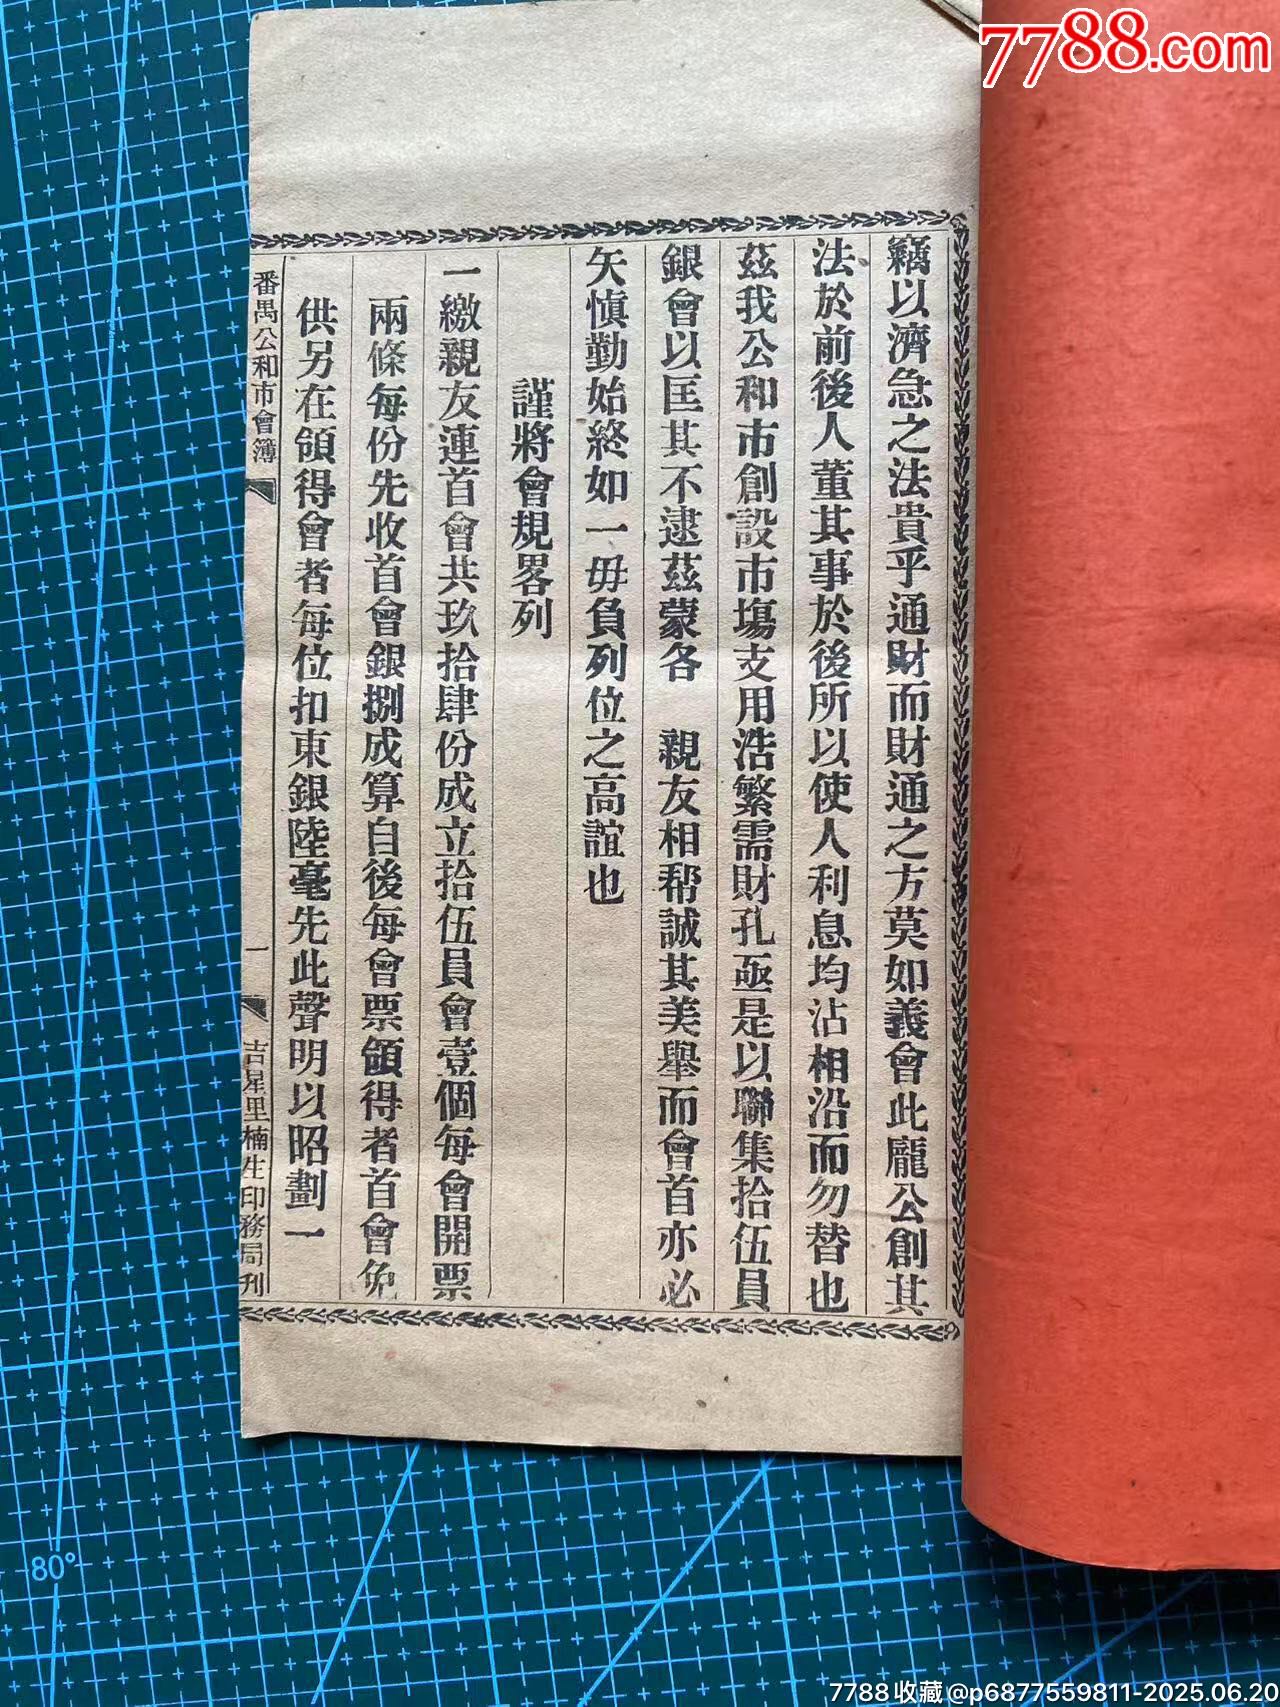 7788.com
竊以濟急之法貴乎通財而財通之方莫如義會此龐公創其
法於前後人董其事於後所以使人利息均沾相沿而勿替也
茲我公和市創設市塲支用浩繁需財孔亟是以聯集拾伍員
銀會以匡其不逮茲蒙各 親友相帮誠其美舉而會首亦必
矢慎勤始終如一毋負列位之高誼也
謹將會規畧列
一繳親友連首會共玖拾肆份成立拾伍員會壹個每會開票
兩條每份先收首會銀捌成算自後每會票領得者首會免
供另在領得會者每位扣東銀陸毫先此聲明以昭劃一
番禺公和市會簿 一 吉星里楠生印務局刊
80°
7788收藏@p6877559811-2025.06.20